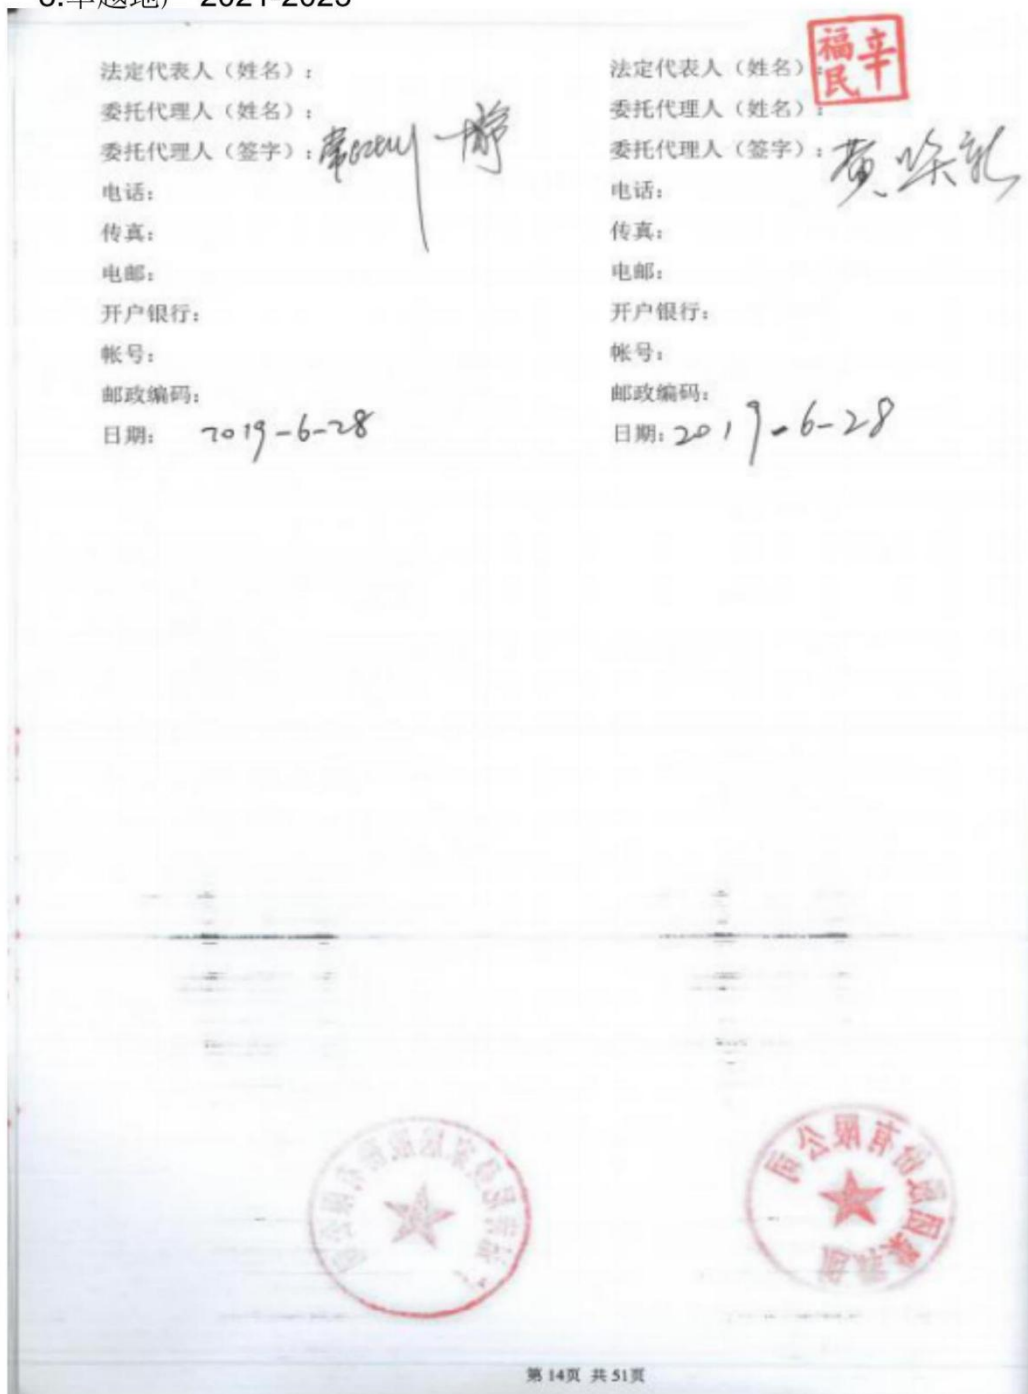 2021-2023
法定代表人（姓名）：
委托代理人（姓名）：
委托代理人（签字）：
电话：
传真：
电邮：
开户银行：
帐号：
邮政编码：
日期： 2019-6-28
法定代表人（姓名）
辛福民
委托代理人（姓名）：
委托代理人（签字）：黄
电话：
传真：
电邮：
开户银行：
帐号：
邮政编码：
日期：2019-6-28
股份有限公司
第 14页 共 51页